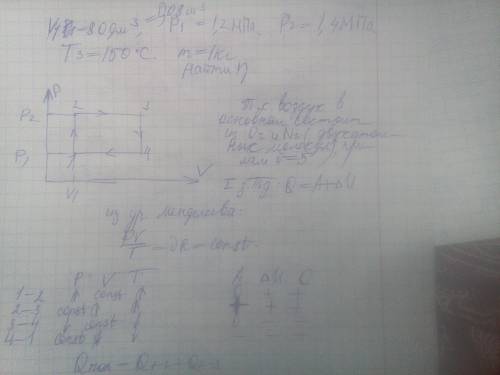 V₁ = 80дм³, = 0,08м³ P₁ = 1,2 МПа, P₂ = 1,4 МПа
T₃ = 150°C. m = 1кг
Найти η
P
P₂ 2 3
P₁ 1 4
V₁ V
Т.к. воздух в
основном состоит
из O₂ и N₂ (двухатом-
ные молекулы) при-
мем i=5
I з. т/д. Q = A + ΔU
из ур. менделеева:
PV/T = νR = const
P V T A ΔU
1-2 ↑ const ↑
2-3 const ↑ ↑ + + +
3-4 ↓ const ↓
4-1 const ↓ ↓ - - -